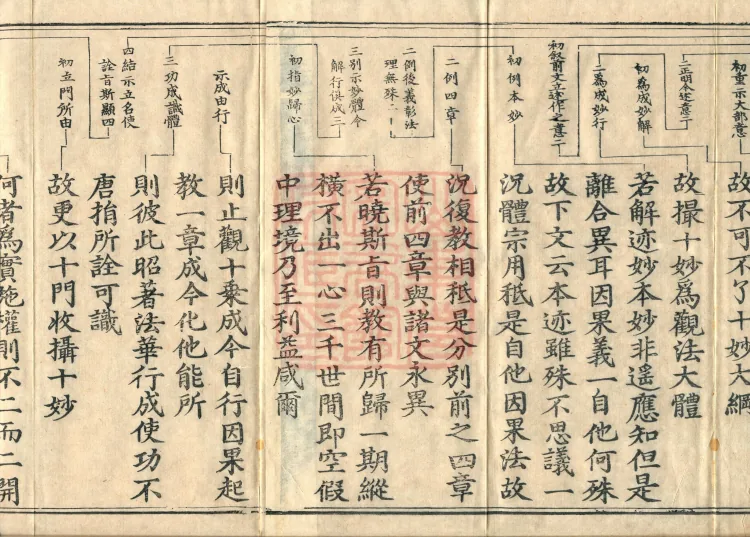 初重示大部意
二正明今述意二
初為成妙解
二為成妙行
初敘前文立述作之意二
初例本妙
二例四章
二例後義彰法
理無殊二
三別示妙體令
解行俱成三
初指妙歸心
示成由行
三功成識體
四結示立名使
詮旨斯顯四
初五門所由
故不可不了十妙大綱
故撮十妙爲觀法大體
若解迹妙本妙非遥應知但是
離合異耳因果義一自他何殊
故下文云本迹雖殊不思議一
況體宗用秪是自他因果法故
況復教相秪是分別前之四章
使前四章與諸文永異
若曉斯旨則教有所歸一期縱
橫不出一心三千世間即空假
中理境乃至利益咸爾
則止觀十乘成今自行因果起
教一章成今化他能所
則彼此昭著法華行成使功不
唐捐所詮可識
故更以十門收攝十妙
何者爲實施權則不二而二開